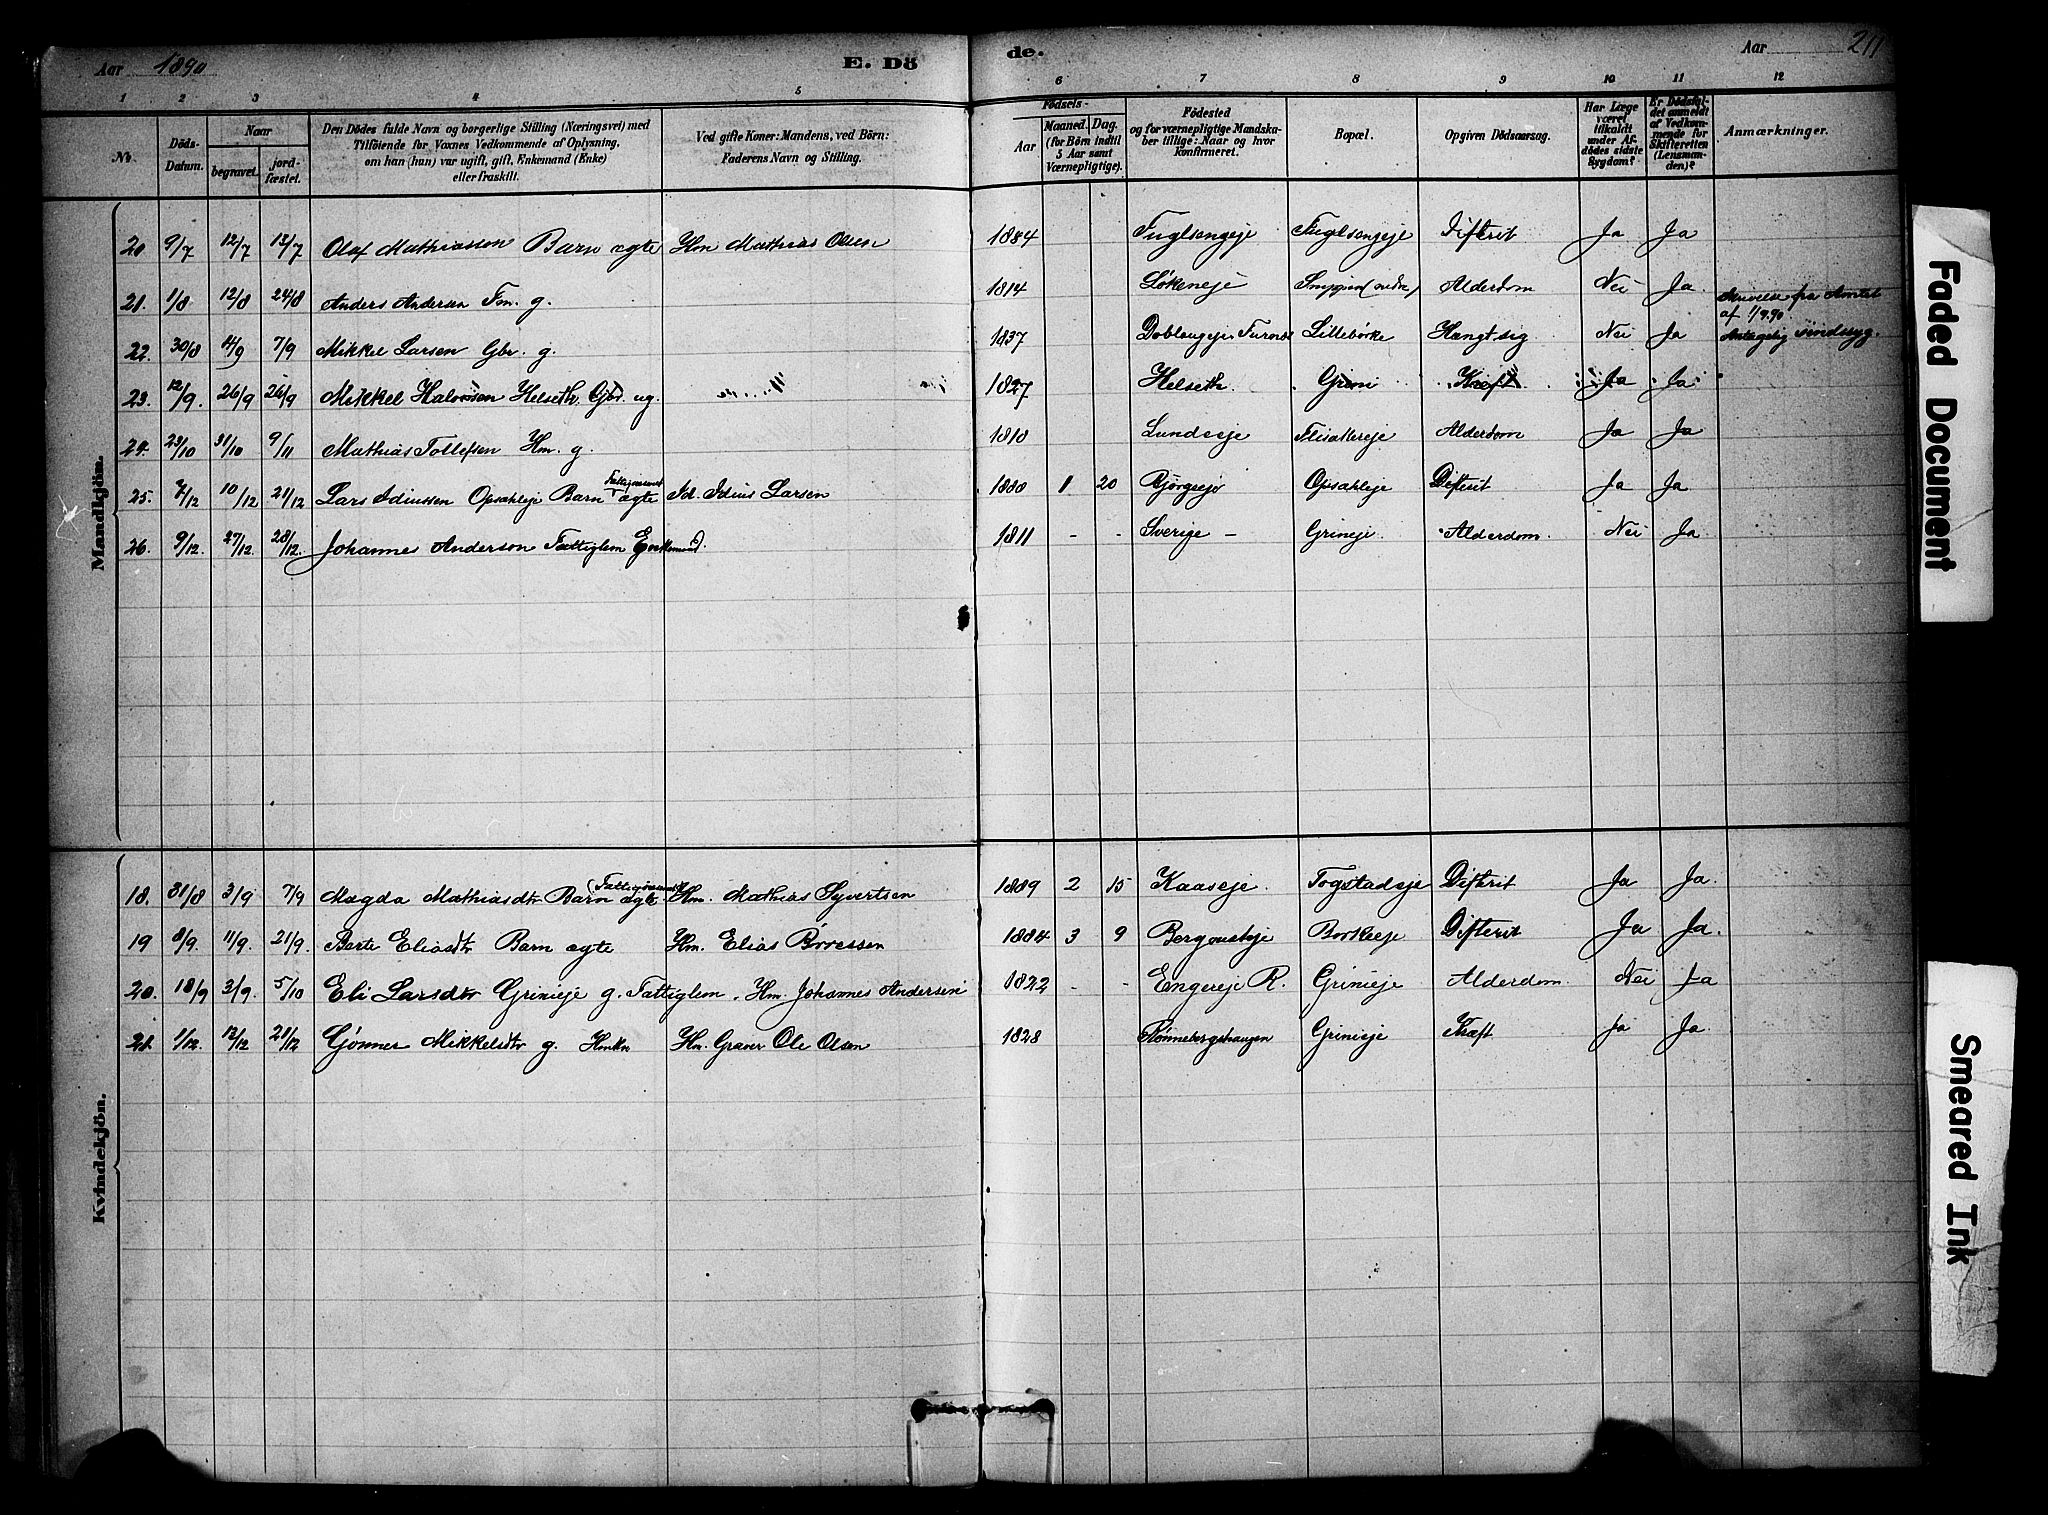 Aar 1890 E. Dö de. Aar 211
1 2 3 4 5 6 7 8 9 10 11 12
No. Döds-Datum. Naar begravet. jordfæstet. Den Dödes fulde Navn og borgerlige Stilling (Næringsvei) med Tilföiende för Voxnes Vedkommende af Oplysning, om han (hun) var ugift, gift, Enkemand (Enke) eller fraskilt. Ved gifte Koner: Mandens, ved Börn: Faderens Navn og Stilling. Födsels- Aar Maaned. Dag. (for Börn indtil 5 Aar samt Værnepligtige). Födested og for værnepligtige Mandskaber tillige: Naar og hvor konfirmeret. Bopæl. Opgiven Dödsaarsag. Har Læge været tilkaldt under Afdödes sidste Sygdom? Er Dödsfaldet anmeldt af Vedkommende for Skifteretten (Lensmanden)? Anmærkninger.
Mandkjön.
20 9/7 12/7 13/7 Olaf Mathiassen Barn ægte Hm Mathias Olsen 1884 Fuglsengeje Fuglsengeje Difterit Ja Ja
21. 1/8 12/8 24/8 Anders Andersen Fm. g. 1814 Løkeneje Alderdom Nei Ja
fra Amtet af 1/9 90
22. 30/8 4/9 7/9 Mikkel Larsen Gbr. g. 1837 Doblougeje Furnes Lillebörke Hængt sig Nei Ja Antagelig sindssyg.
23. 12/9. 26/9 26/9 Mikkel Halvorsen Helseth Gbr. ug. 1827 Helseth Grini Kræft Ja Ja
24. 23/10 31/10 9/11 Mathias Tollefsen Hm. g. 1810 Lundseje Flisakereje Alderdom Ja Ja
25. 7/12 10/12 21/12 Lars Idiussen Opsahleje Barn ægte Id. Idius Larsen 1888 1 20 Bjørgeje Opsahleje Difterit Ja Ja
26. 9/12. 27/12. 28/12. Johannes Anderson Fattiglem Enkemand. 1811 - - Sverige - Grineje Alderdom. Nei Ja
Kvindekjön.
18. 31/8 3/9 7/9 Magda Mathiasdtr Barn ægte Hm. Mathias Syvertsen 1889 2 15 Kaaseje. Togstadeje Difterit Ja Ja.
19 8/9. 11/9. 21/9. Berte Eliasdtr Barn ægte Hm. Elias Børessen 1884 3 9 Borkeeje Difterit Ja Ja.
20. 18/9 3/9. 5/10 Eli Larsdtr Grinieje g. Fattiglem. Hm. Johannes Andersen 1822 - - Engereje R. Grinieje Alderdom. Nei Ja
21. 1/12. 13/12 21/12 Gønner Mikkelsdtr g. Hmkn Hm. Graver Ole Olsen 1828 Rønnebergshaugen Grinieje Kræft Ja Ja.
Faded Document
Smeared Ink